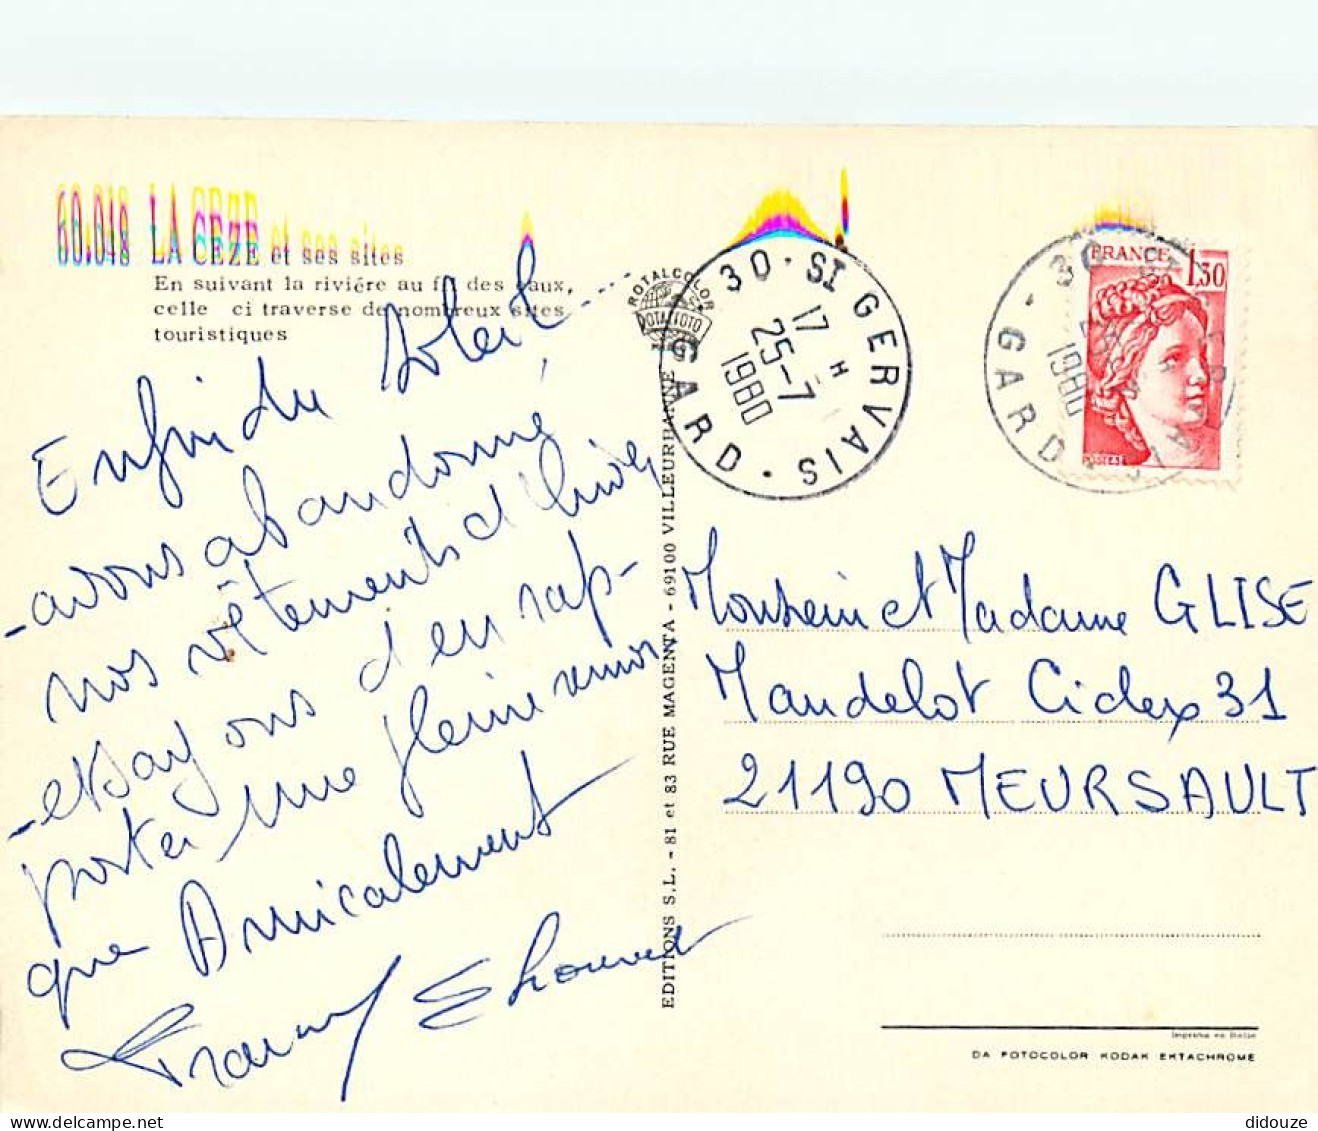 60.048 LA CEZE et ses sites
En suivant la riviére au fil des eaux,
celle ci traverse de nombreux sites
touristiques
ROTALCOLOR
ROTALFOTO
30 · ST GERVAIS · GARD
17 H
25-7
1980
FRANCE 1,30
POSTES
30 · GARD
1980
Enfin du soleil
- avons abandonné
nos vêtements d'hiver
- essayons d'en rap-
porter une pleine
que Amicalement
EDITIONS S.L. - 81 et 83 RUE MAGENTA - 69100 VILLEURBANNE
Monsieur et Madame GLISE
Mandelot Cidex 31
21190 MEURSAULT
Imprimé en Italie
DA FOTOCOLOR KODAK EKTACHROME
didouze